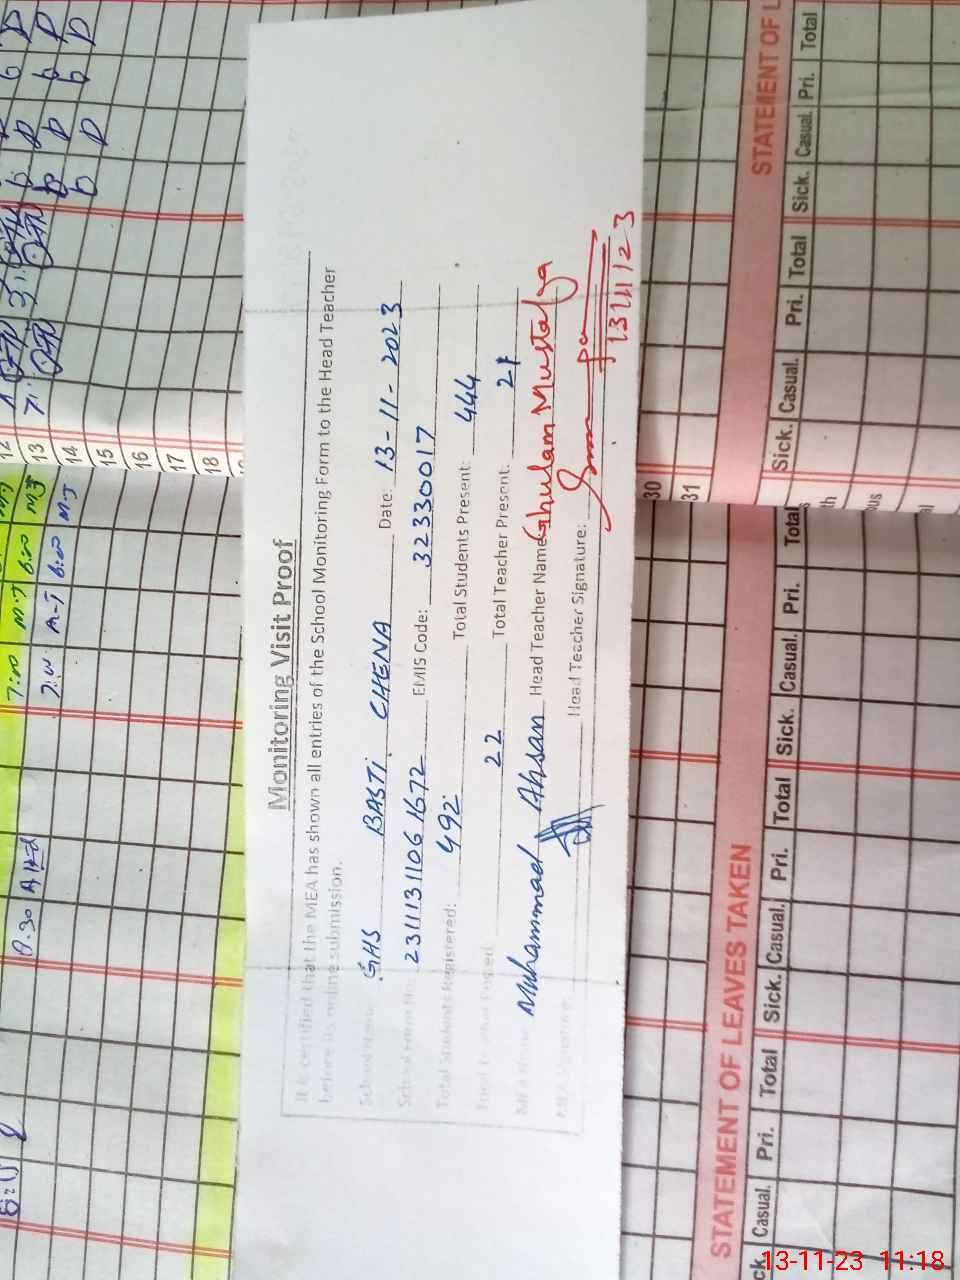 Monitoring Visit Proof
It is certified that the MEA has shown all entries of the School Monitoring Form to the Head Teacher
before its online submission.
School Name: GHS BASTI CHENA Date: 13-11-2023
School Form No: 23111311061672 EMIS Code: 32330017
Total Students Registered: 492 Total Students Present: 444
Total Teacher Posted 22 Total Teacher Present: 21
MEA Name Muhammad Ahsan Head Teacher Name Ghulam Mustafa
MEA Signature: Head Teacher Signature:
13/11/23
12
13
14
15
16
17
18
7:00 M.J 6:00 M.J
7:00 A-J 6:00 M.J
8.30
30
31
STATEMENT OF LEAVES TAKEN
Casual. Pri. Total Sick. Casual. Pri. Total Sick. Casual. Pri. Total
STATEMENT OF L
Sick. Casual. Pri. Total Sick. Casual. Pri. Total
13-11-23 11:18